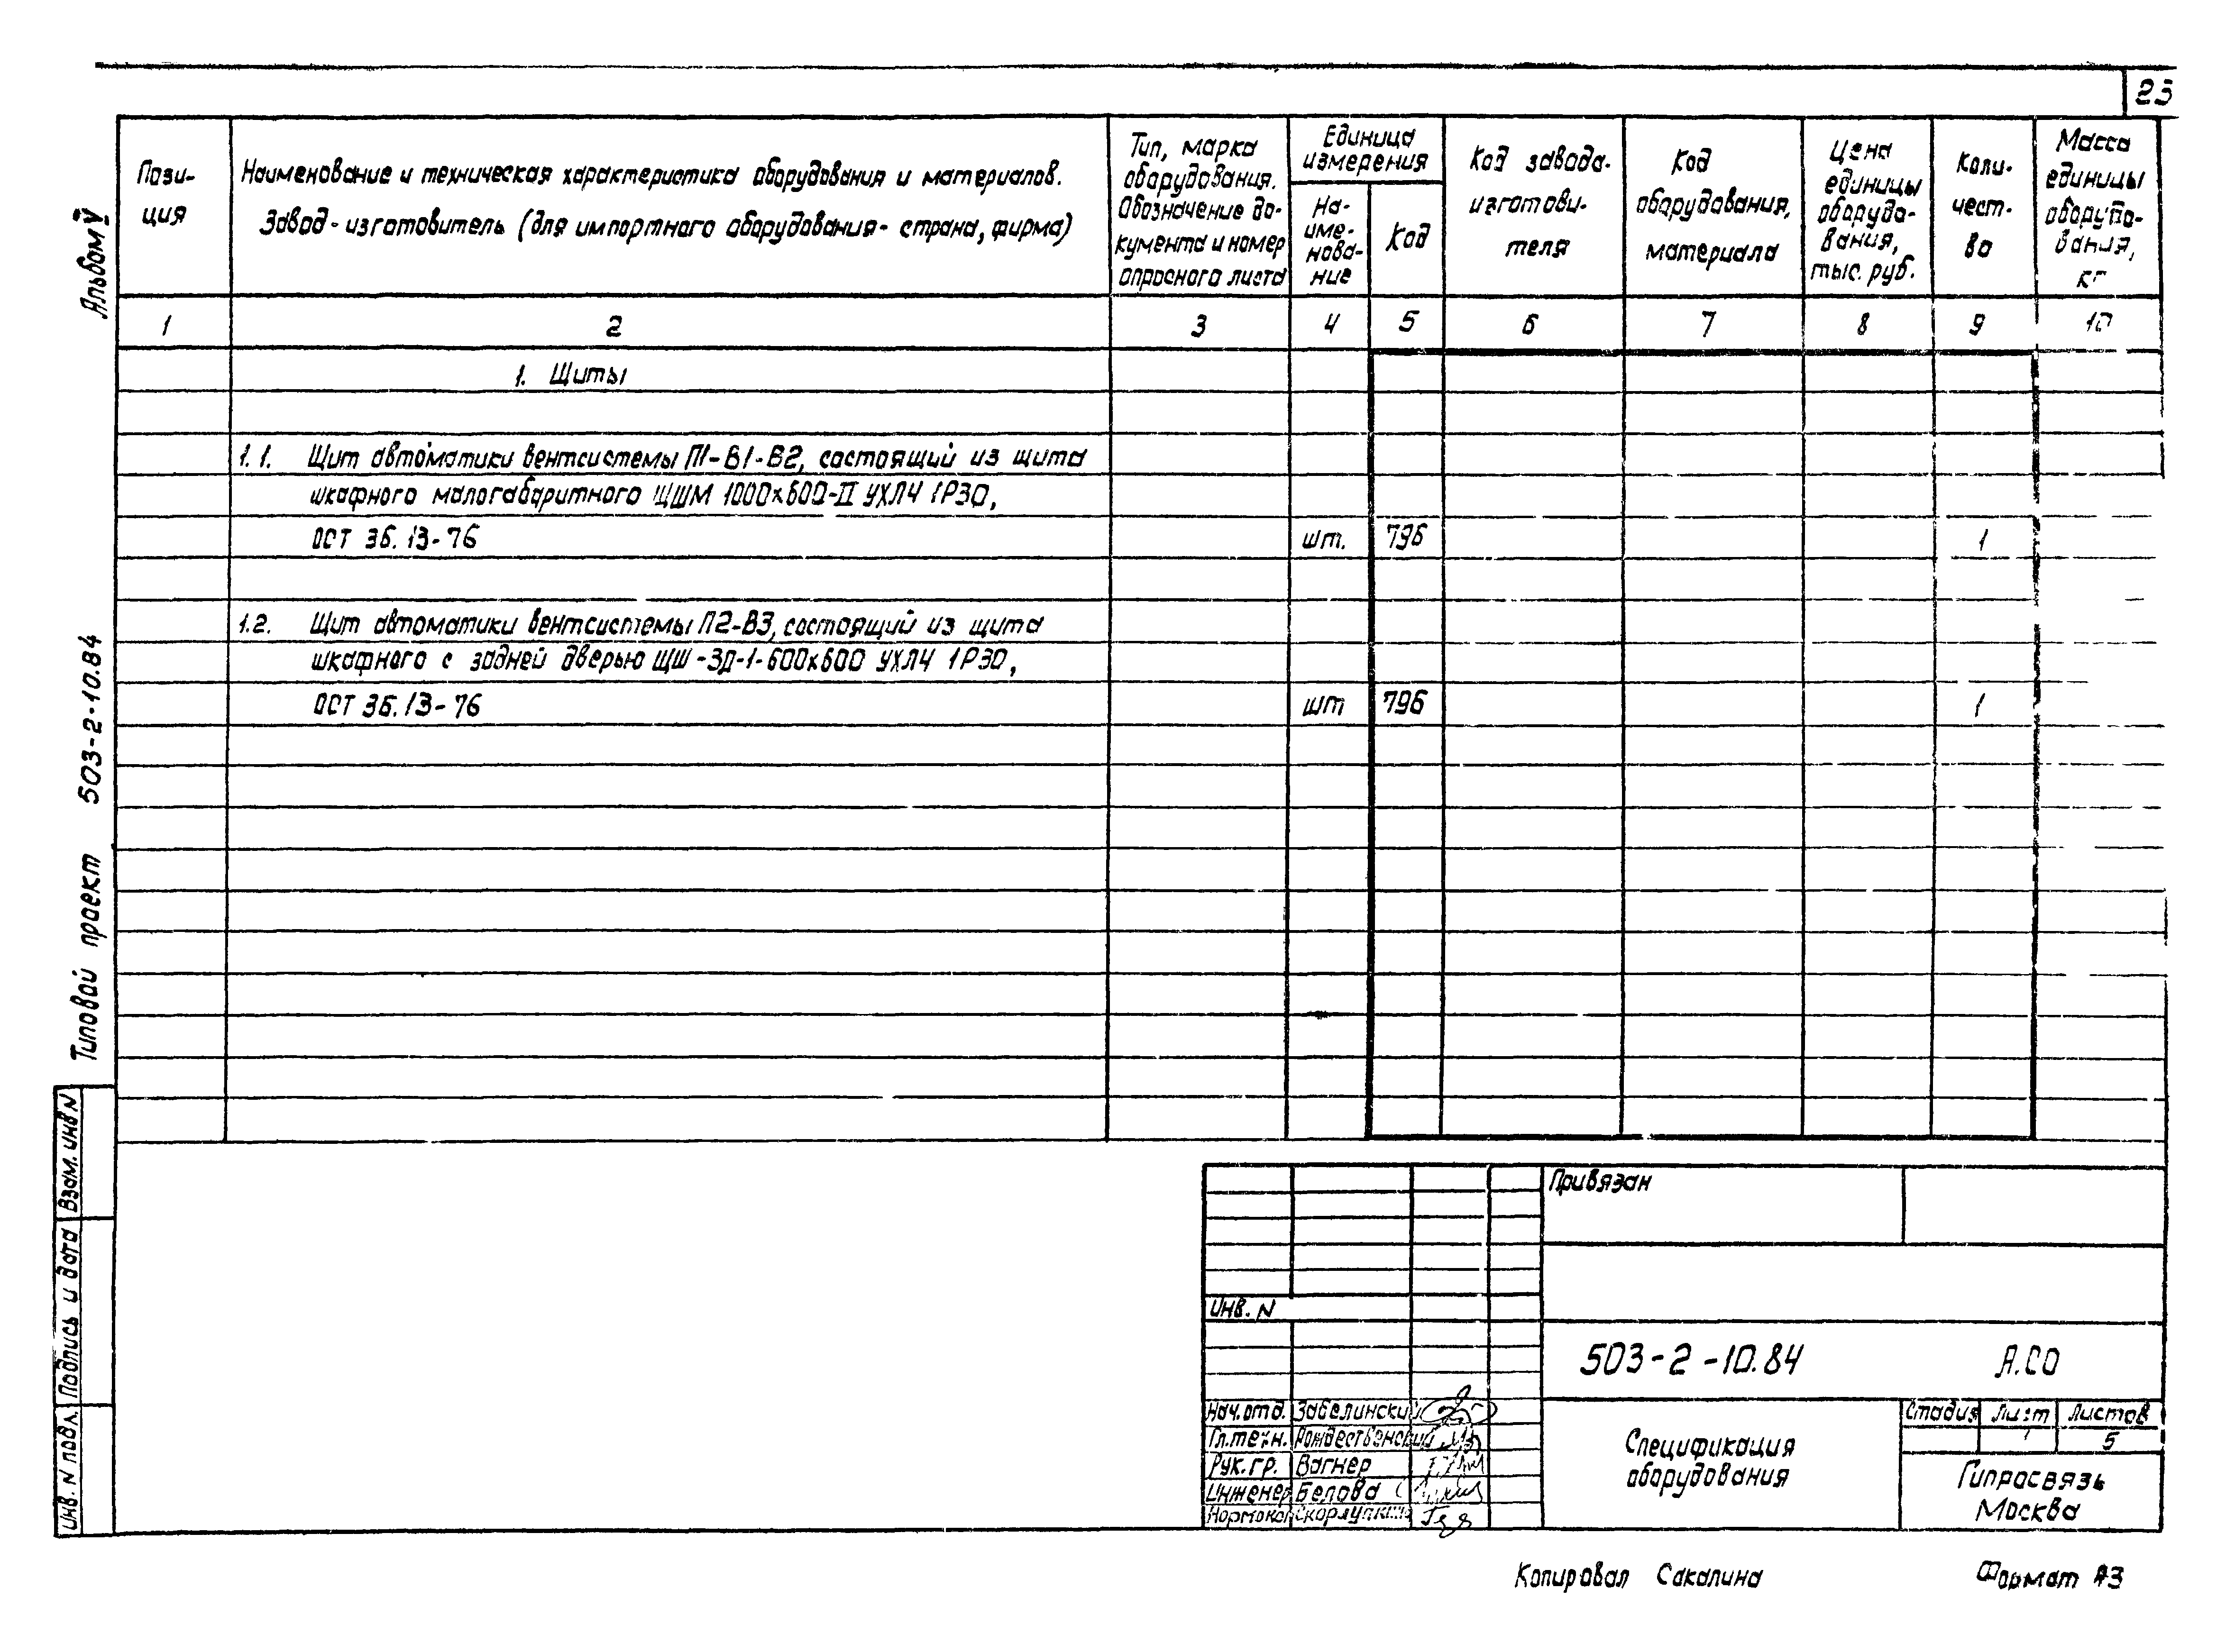 23
Альбом V
Типовой проект 503-2-10.84
Взам. инв N
Подпись и дата
Инв. N подл.
Пози-
ция
Наименование и техническая характеристика оборудования и материалов.
Завод-изготовитель (для импортного оборудования- страна, фирма)
Тип, марка
оборудования.
Обозначение до-
кумента и номер
опросного листа
Единица
измерения
На-
име-
нова-
ние
Код
Код завода-
изготови-
теля
Код
оборудования,
материала
Цена
единицы
оборудо-
вания,
тыс. руб.
Коли-
чест-
во
Масса
единицы
оборудо-
вания,
кг
1 2 3 4 5 6 7 8 9 10
1. Щиты
1.1. Щит автоматики вентсистемы П1-В1-В2, состоящий из щита
шкафного малогабаритного ЩШМ 1000х600-II УХЛ4 IP30,
ОСТ 36.13-76 шт. 796 1
1.2. Щит автоматики вентсистемы П2-В3, состоящий из щита
шкафного с задней дверью ЩШ-ЗД-1-600х600 УХЛ4 IP30,
ОСТ 36.13-76 шт 796 1
Привязан
Инв. N
503-2-10.84 А.СО
Нач.отд. Забелинский
Гл.техн. Рождественский
Рук.гр. Вагнер
Инженер Белова
Нормокон
Спецификация
оборудования
Стадия Лист Листов
1 5
Гипросвязь
Москва
Копировал Сакалина Формат А3